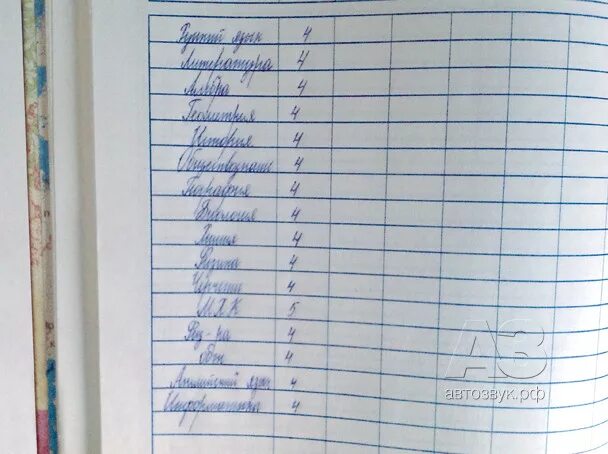 Русский язык 4
Литература 4
Алгебра 4
Геометрия 4
История 4
Обществознание 4
География 4
Биология 4
Химия 4
Физика 4
Черчение 4
МХК 5
Физ-ра 4
ОБЖ 4
Английский язык 4
Информатика 4
АЗ
автозвук.рф